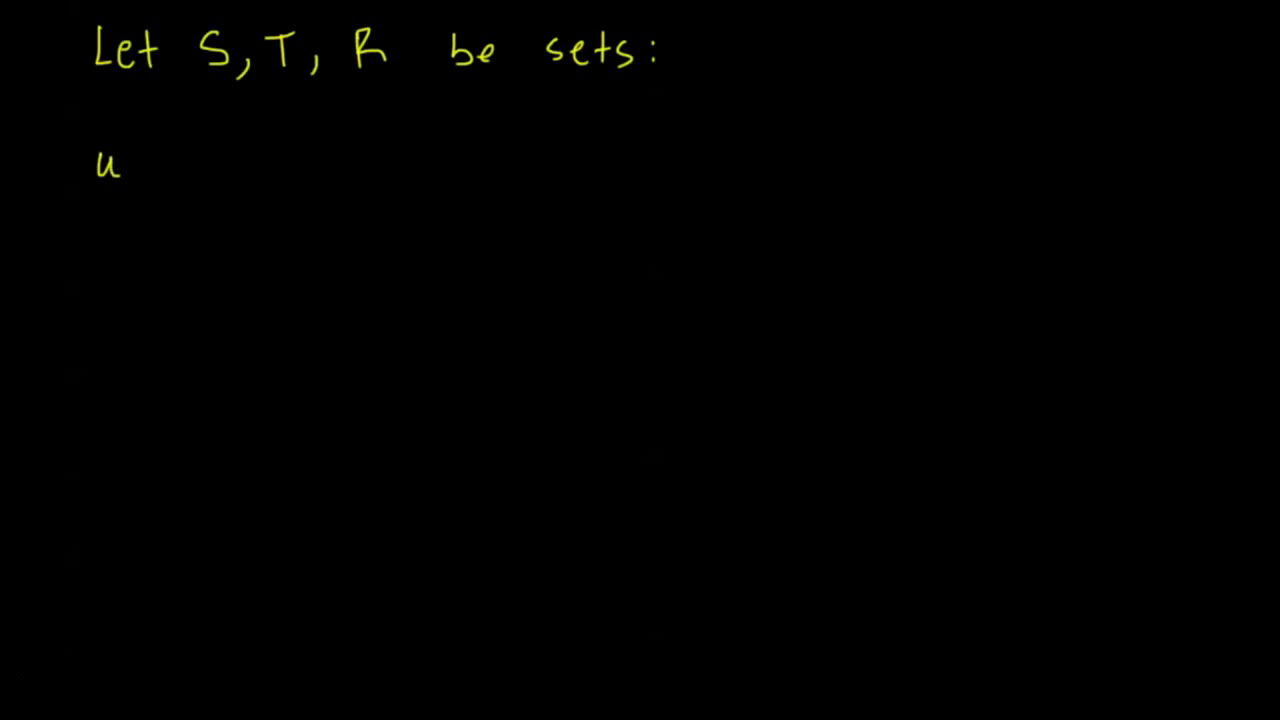 Let S, T, R be sets:
u